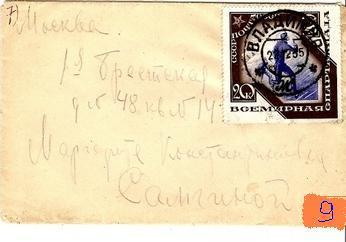 Москва
1я Брестская
д № 48 кв № 14
Маргарите Константиновне
Самгиной
СССР ПОЧТА
20 к
ВСЕМИРНАЯ
СПАРТАКИАДА
ВЛАДИМИР
9